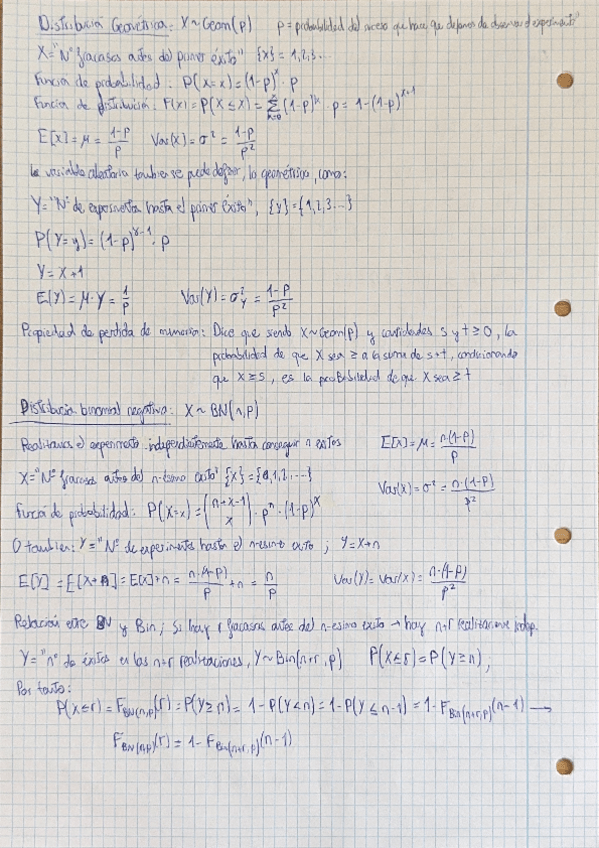 Distribución Geométrica: X~Geom(p) p = probabilidad del suceso que hace que dejemos de observar el experimento"
X="Nº fracasos antes del primer éxito" {x} = 1,2,3...
Función de probabilidad: P(X=x) = (1-p)^x · p
Función de distribución: F(x) = P(X≤x) = Σ_{k=0}^{x} (1-p)^k · p = 1-(1-p)^{x+1}
E[x] = μ = (1-p)/p Var(x) = σ² = (1-p)/p²
La variable aleatoria también se puede definir, la geométrica, como:
Y="Nº de experimentos hasta el primer éxito", {y} = {1,2,3...}
P(Y=y) = (1-p)^{x-1} · p
Y = X+1
E(Y) = μ·Y = 1/p Var(Y) = σ²_Y = (1-p)/p²
Propiedad de perdida de memoria: Dice que siendo X~Geom(p) y cantidades s y t ≥ 0, la
probabilidad de que X sea ≥ a la suma de s+t, condicionando
que X ≥ s, es la probabilidad de que X sea ≥ t
Distribución binomial negativa: X ~ BN(n,p)
Realizamos el experimento independientemente hasta conseguir n éxitos E[x] = μ = n·(1-p)/p
X="Nº fracasos antes del n-esimo éxito" {x} = {0,1,2,...} Var(x) = σ² = n·(1-p)/p²
Función de probabilidad: P(X=x) = (n+x-1 x) · p^n · (1-p)^x
O también: Y="Nº de experimentos hasta el n-esimo éxito ; Y=X+n
E[Y] = E[X+n] = E[x]+n = n·(1-p)/p + n = n/p Var(Y) = Var(X) = n·(1-p)/p²
Relación entre BN y Bin; Si hay r fracasos antes del n-esimo éxito → hay n+r realizaciones indep.
Y="nº de éxitos en las n+r realizaciones, Y~Bin(n+r, p) P(X≤r) = P(Y≥n),
Por tanto:
P(X≤r) = F_{BN(n,p)}(r) = P(Y≥n) = 1-P(Y<n) = 1-P(Y≤n-1) = 1-F_{Bin(n+r,p)}(n-1) →
F_{BN(n,p)}(r) = 1-F_{Bin(n+r,p)}(n-1)